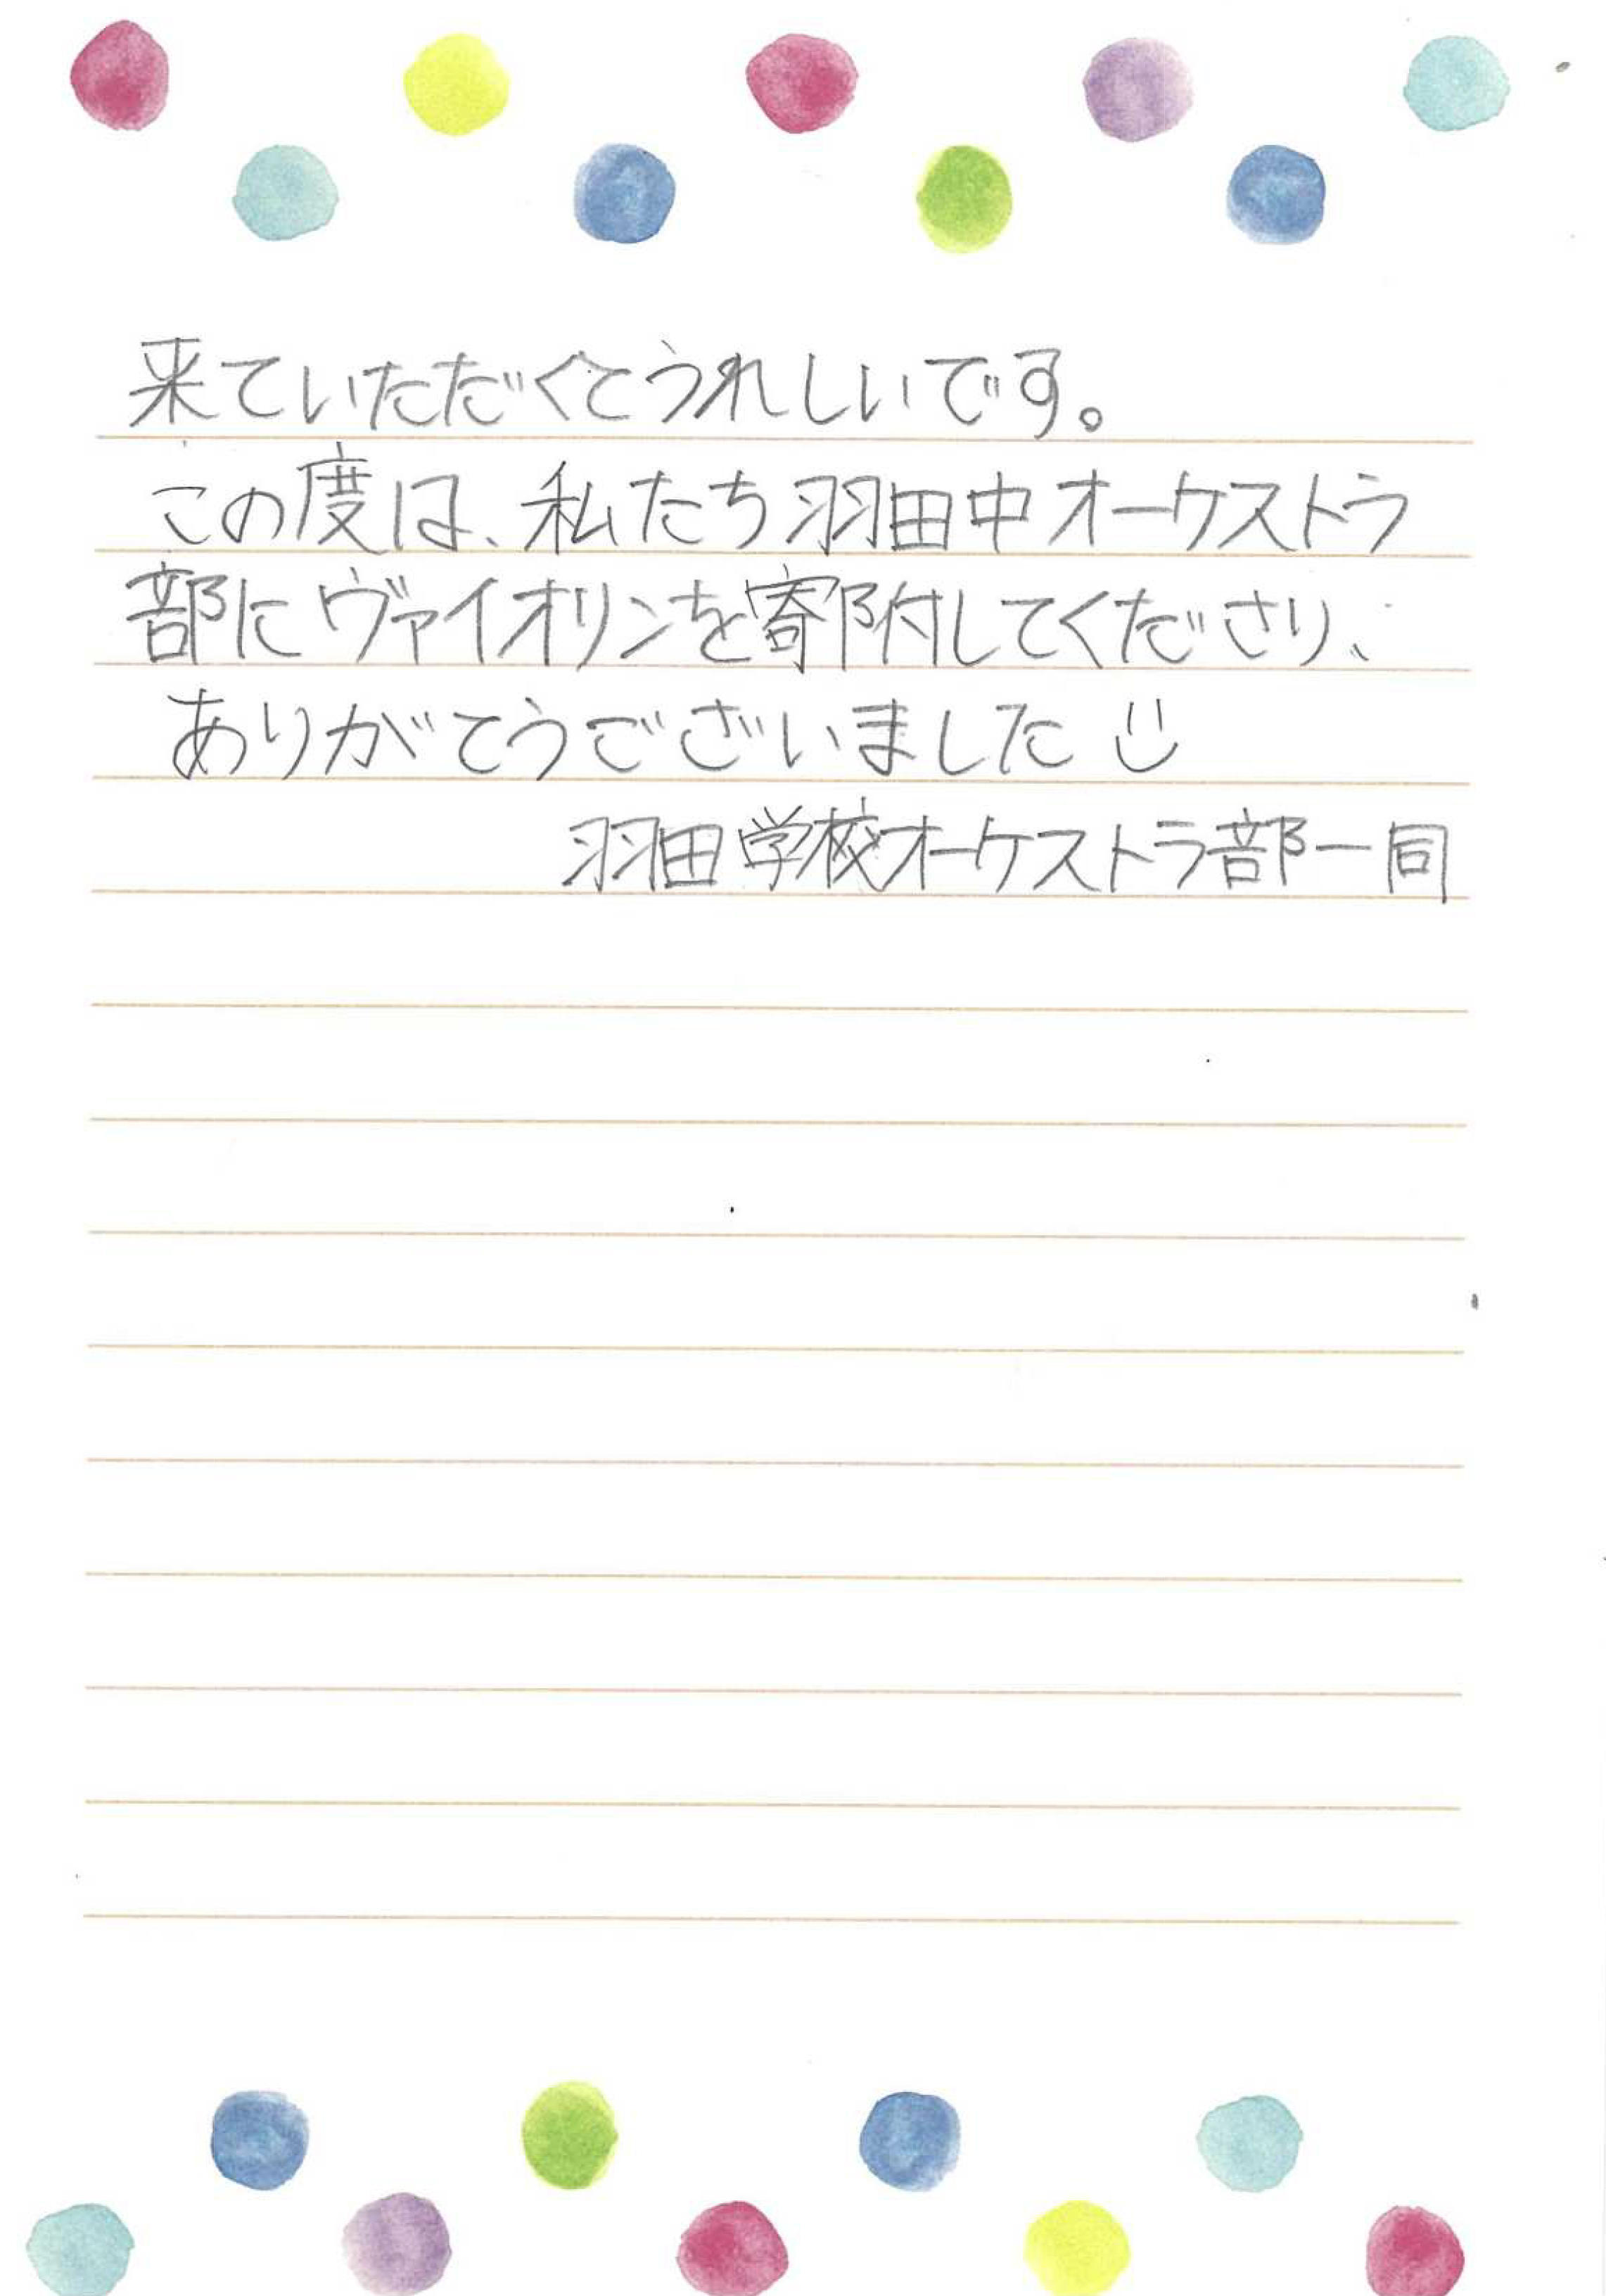 来ていただくとうれしいです。
この度は、私たち羽田中オーケストラ
部にヴァイオリンを寄附してくださり、
ありがとうございました
羽田学校オーケストラ部一同